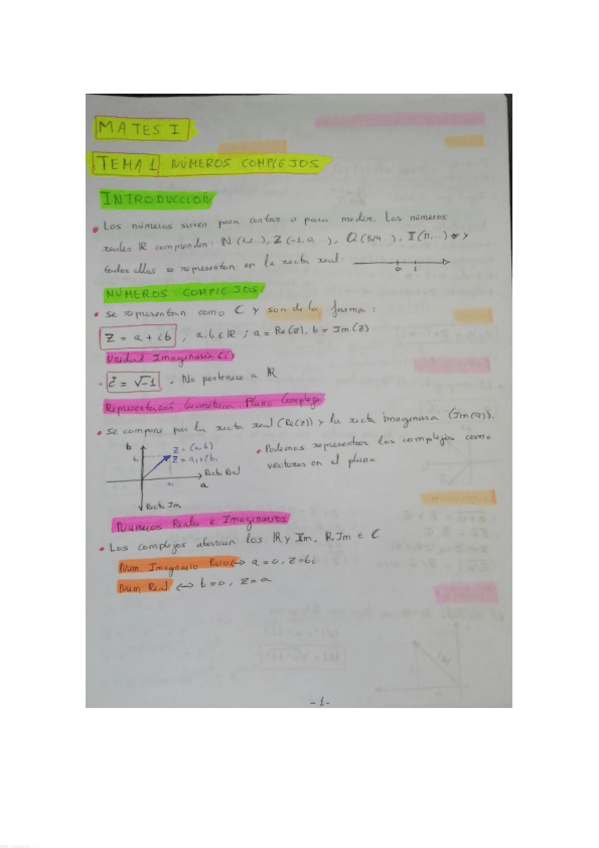 MATES I
TEMA 1: NÚMEROS COMPLEJOS
INTRODUCCIÓN
• Los números sirven para contar o para medir. Los números
reales ℝ comprenden: N (1,2...), Z (-1,0...), Q (5/4...), I (π,...) y
todos ellos se representan en la recta real:
0 1
NÚMEROS COMPLEJOS
• Se representan como C y son de la forma:
Z = a + ib, a, b ∈ ℝ ; a = Re(z), b = Im(z)
Unidad Imaginaria (i)
· i = √-1 . No pertenece a ℝ
Representación Geométrica Plano Complejo
• Se compone por la recta real (Re(z)) y la recta imaginaria (Im(z)).
b
z = (a,b)
z = a+ib
Recta Real
a
Recta Im
• Podemos representar los complejos como
vectores en el plano.
Números Reales e Imaginarios
• Los complejos abarcan los ℝ y Im, ℝ, Im ∈ C
Num. Imaginario Puro ⇔ a = 0, z = bi
Num Real ⇔ b = 0, z = a
-1-